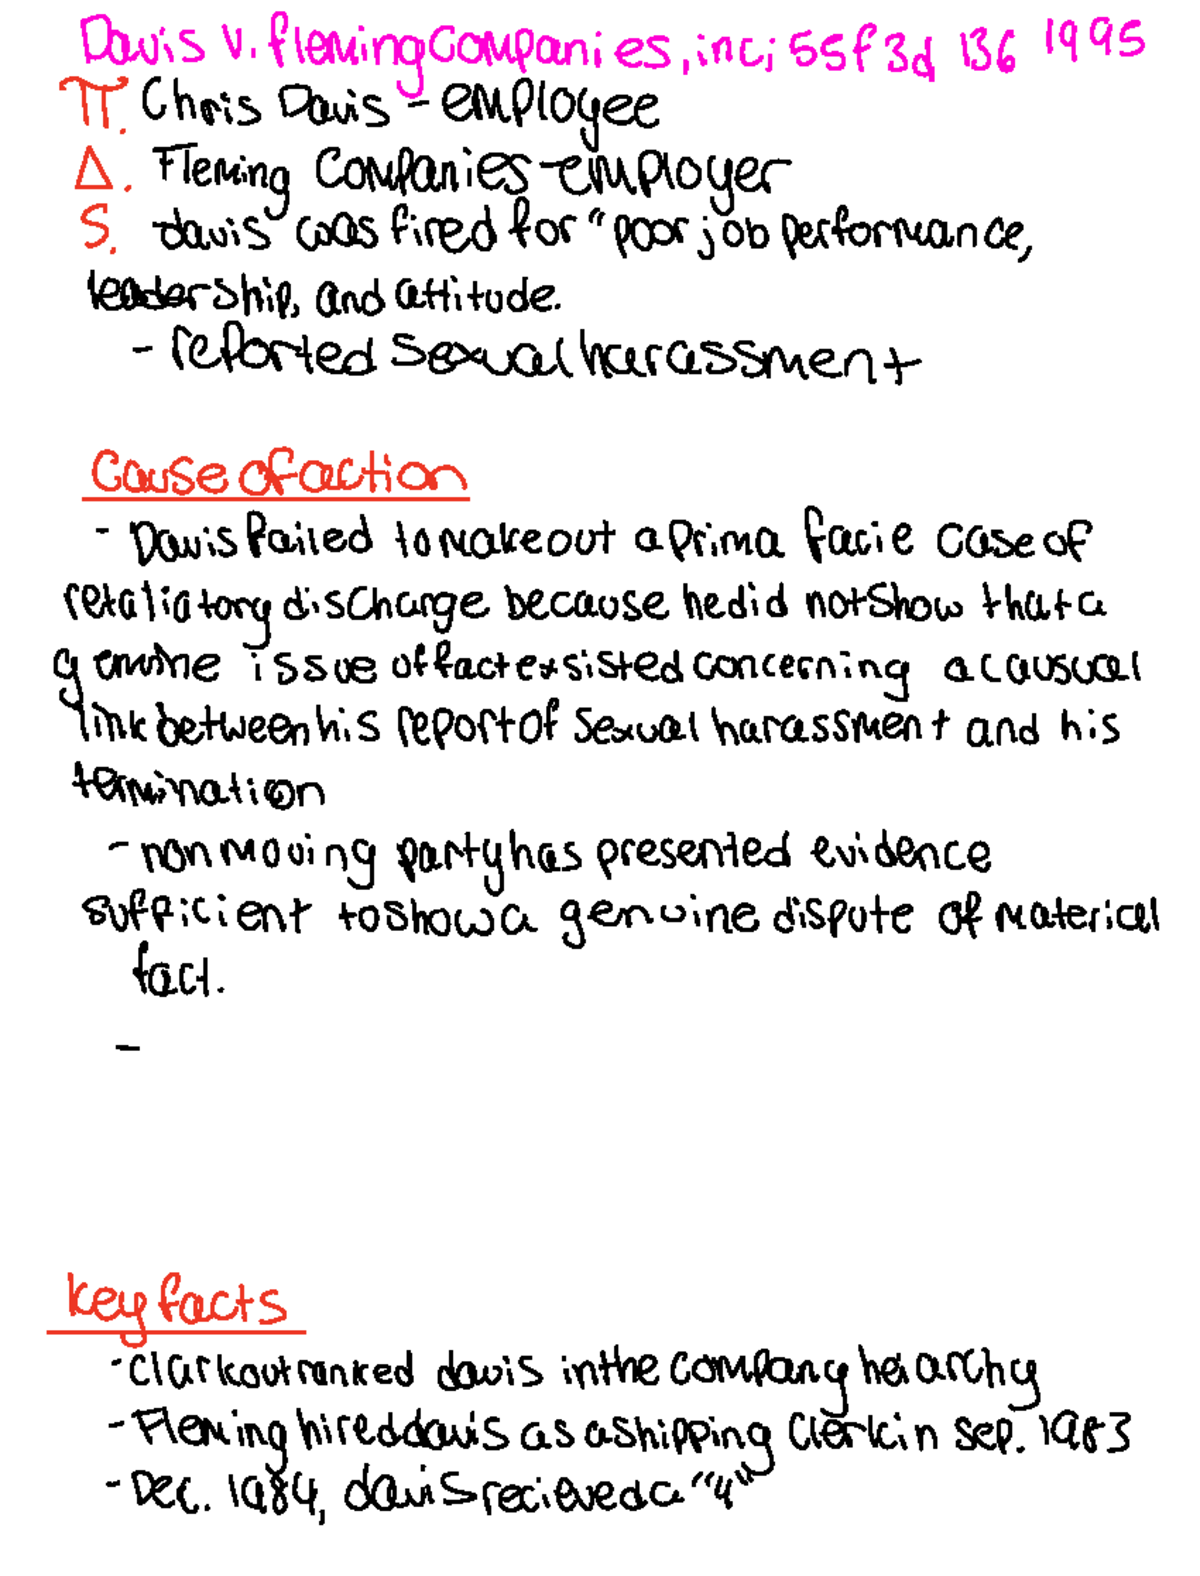 Davis v. Fleming Companies, inc; 55 f 3d 136 1995
π. Chris Davis - employee
Δ. Fleming Companies - employer
S. davis was fired for "poor job performance,
leadership, and attitude.
- reported sexual harassment
Cause of action
- Davis failed to make out a prima facie case of
retaliatory discharge because he did not show that a
genuine issue of fact exsisted concerning a causual
link between his report of sexual harassment and his
termination
- non moving party has presented evidence
sufficient to show a genuine dispute of material
fact.
-
key facts
- Clark outranked davis in the company heiarchy
- Fleming hired davis as a shipping clerk in sep. 1983
- Dec. 1984, davis recieved a "4"